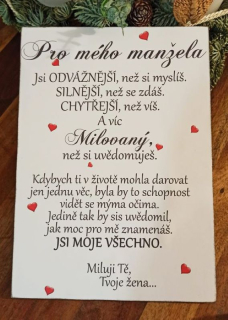 Pro mého manžela
Jsi ODVÁŽNĚJŠÍ, než si myslíš.
SILNĚJŠÍ, než se zdáš.
CHYTŘEJŠÍ, než víš.
A víc
Milovaný,
než si uvědomuješ.
Kdybych ti v životě mohla darovat
jen jednu věc, byla by to schopnost
vidět se mýma očima.
Jedině tak by sis uvědomil,
jak moc pro mě znamenáš.
JSI MOJE VŠECHNO.
Miluji Tě,
Tvoje žena...